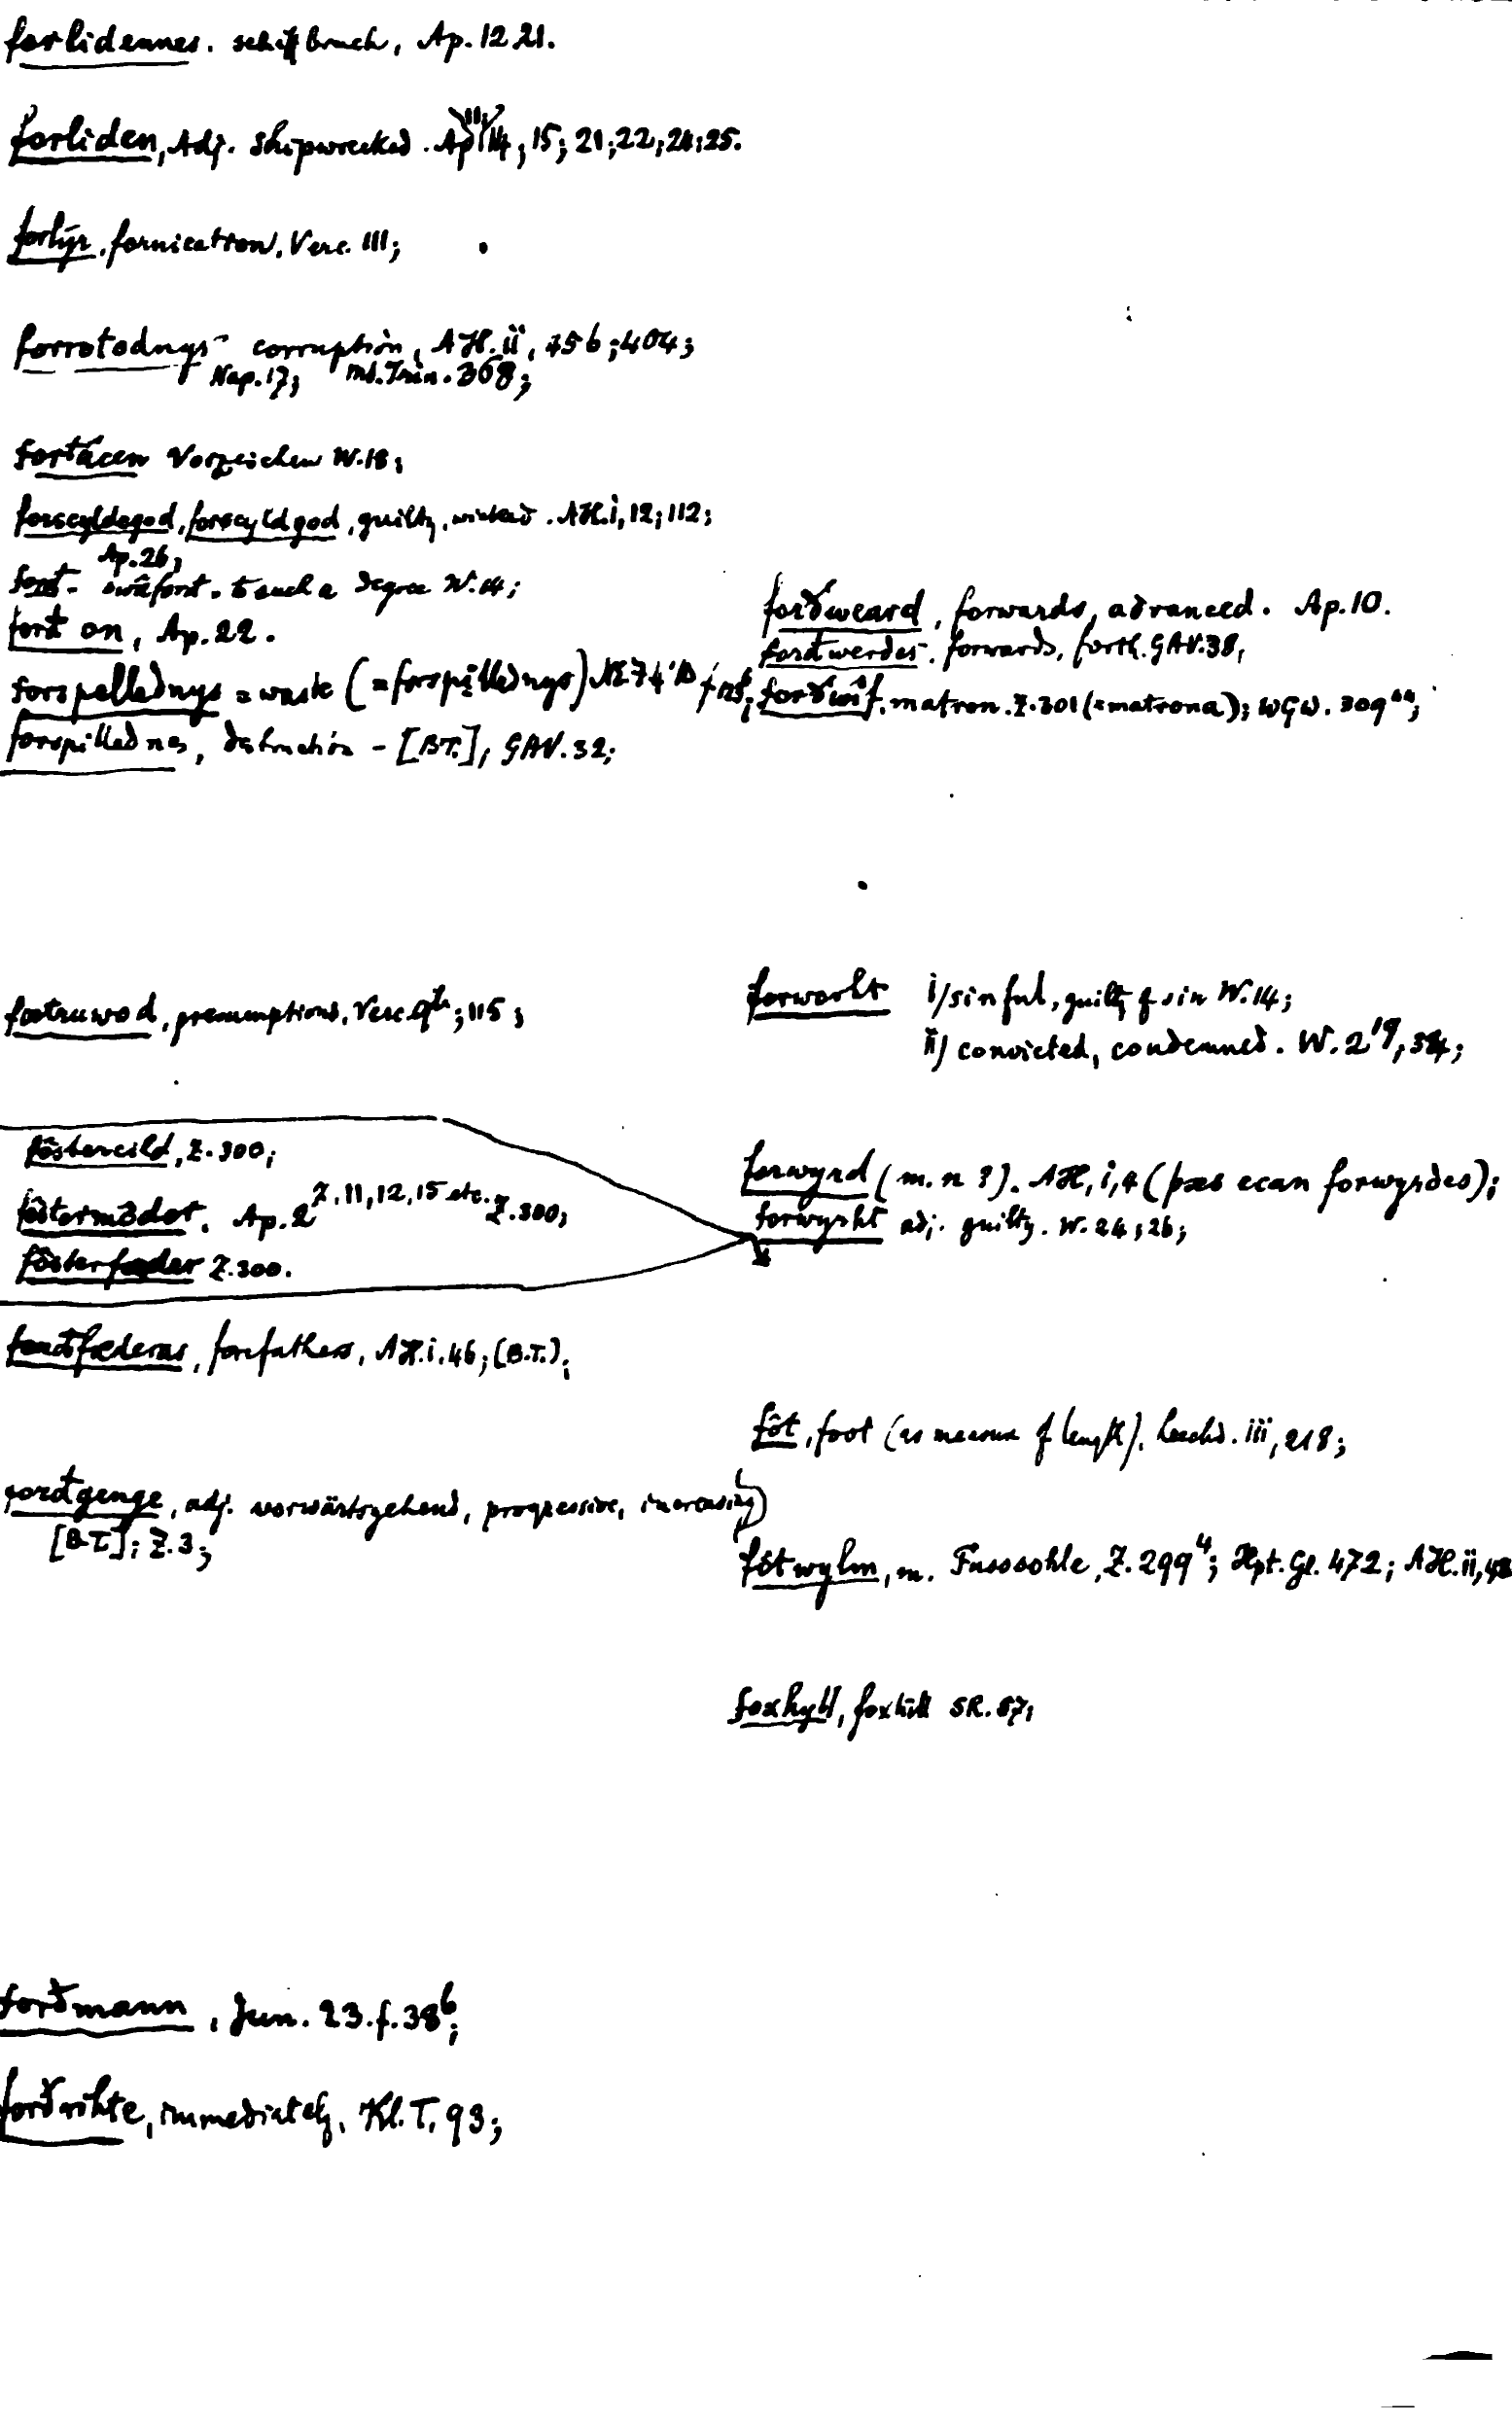 forlidennes. schiffbruch, Ap. 12 21.
forliden, Adj. shipwrecked. Ap 11; 14; 15; 21; 22; 24; 25.
forlȳr, fornication, Verc. 111;
forrotodnys corruption, AH. ii, 456; 404;
Nap. 17; ms. Trin. 368;
fortācen Vorzeichen W. 18;
forscyldegod, forscyldgod, guilty, wicked. AH. i, 12; 112;
Ap. 26;
forđ. swâforđ. to such a degree W. 14;
forđ on, Ap. 22.
forspellednys = waste (= forspillednys) AE 74
forspillednes, destruction - [BT.], GAV. 32;
forðweard, forwards, advanced. Ap. 10.
forđwerdes. forwards, forth. GAV. 38,
forðwîf. matron. Z. 301 (= matrona); WGW. 309
fortruwod, presumptious, Verc. 9b; 115;
forworht i/ sinful, guilty of sin W. 14;
ii/ convicted, condemned. W. 2 19, 34;
fôstercild, Z. 300;
fôstermôdor. Ap. 2 7, 11, 12, 15 etc. Z. 300;
fôsterfæder Z. 300.
forwyrd (m. n?). AH, i, 4 (þæs ecan forwyrdes);
forwyrht adj. guilty. W. 24; 26;
forđfæderas, forefathers, AH. i. 46; (B.T.);
fôt, foot (as measure of length), Leechd. iii, 218;
forđgenge, adj. vorwärtsgehend, progressive, increasing
[B-T]; Z. 3;
fôtwylm, m. Fusssohle, Z. 299 4; Hpt. Gl. 472; AH. ii, 48
foxhyll, foxhill SR. 87;
forðmann, Jun. 23. f. 38b;
forðrihte, immediately, Kl. T. 93;